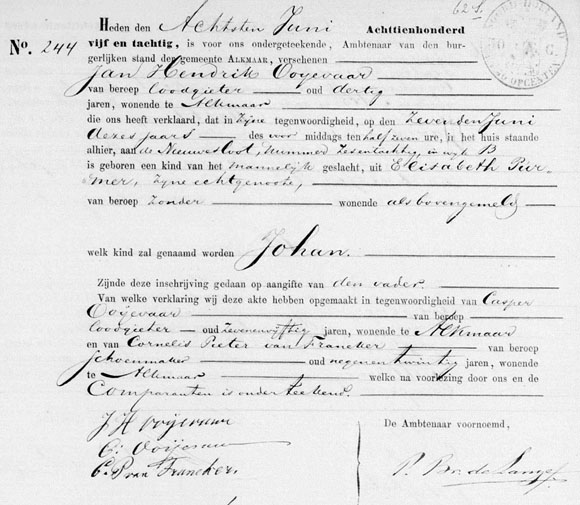 621
Heden den Achtsten Juni Achttienhonderd
No. 244
vijf en tachtig, is voor ons ondergeteekende, Ambtenaar van den bur-
gerlijken stand der gemeente ALKMAAR, verschenen
Jan Hendrik Ooyevaar
van beroep Loodgieter oud dertig
jaren, wonende te Alkmaar
die ons heeft verklaard, dat in zijne tegenwoordigheid, op den Zevenden Juni
dezes jaars des voor middags ten half zeven ure, in het huis staande
alhier, aan de Nieuwesloot, Nummer Zesentachtig, in wijk B
is geboren een kind van het mannelijk geslacht, uit Elisabeth Pur-
mer, zijne echtgenoote,
van beroep zonder wonende als bovengemeld
welk kind zal genaamd worden Johan.
Zijnde deze inschrijving gedaan op aangifte van den vader.
Van welke verklaring wij deze akte hebben opgemaakt in tegenwoordigheid van Casper
Ooyevaar van beroep
Loodgieter oud zevenenvijftig jaren, wonende te Alkmaar
en van Cornelis Pieter van Francker van beroep
Schoenmaker oud negenentwintig jaren, wonende
te Alkmaar welke na voorlezing door ons en de
Comparanten is onderteekend.
J H Ooijevaar
C: Ooijevaar
C. P. van Francker.
De Ambtenaar voornoemd,
de Lange